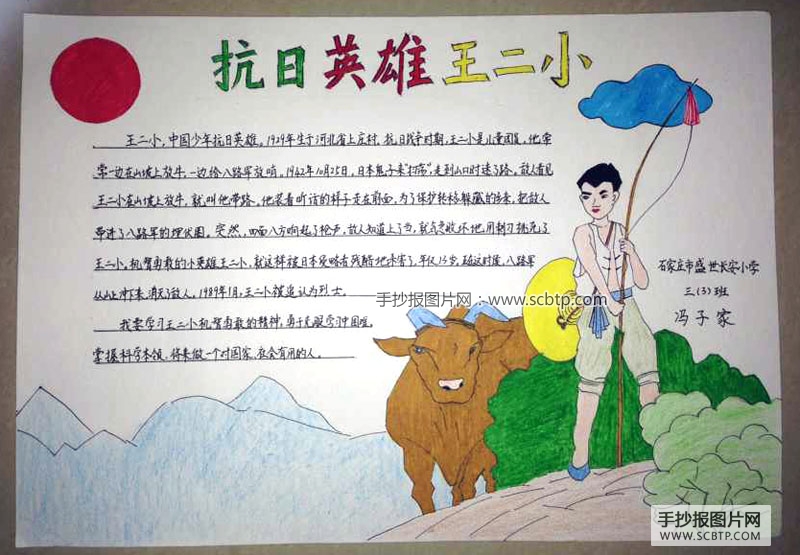 抗日英雄王二小
王二小，中国少年抗日英雄。1929年生于河北省上庄村。抗日战争时期，王二小是儿童团员，他常
常一边在山坡上放牛，一边给八路军放哨。1942年10月25日，日本鬼子来“扫荡”，走到山口时迷了路。敌人看见
王二小在山坡上放牛，就叫他带路。他装着听话的样子走在前面，为了保护转移躲藏的乡亲，把敌人
带进了八路军的埋伏圈。突然，四面八方响起了枪声，敌人知道上了当，就气急败坏地用刺刀挑死了
王二小。机智勇敢的小英雄王二小，就这样被日本侵略者残酷地杀害了，年仅13岁。正在这时候，八路军
从山上冲下来，消灭了敌人。1989年1月，王二小被追认为烈士。
我要学习王二小机智勇敢的精神，勇于克服学习中困难，
掌握科学本领，将来做一个对国家、社会有用的人。
石家庄市盛世长安小学
三（3）班
冯子家
手抄报图片网：www.scbtp.com
手抄报图片网
WWW.SCBTP.COM